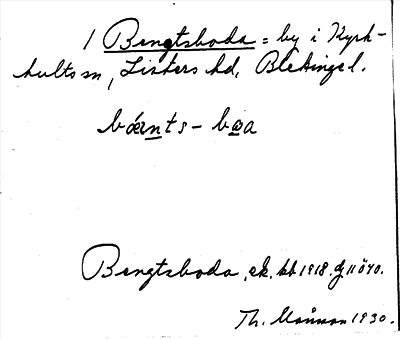 1 Bengtsboda = by i Kyrk-
hults sn, Listers hd, Blekinge l.
bǽnts - bǝa
Bengtsboda, ek. kb 1918. J 11ö40.
Th. Månsson 1930.